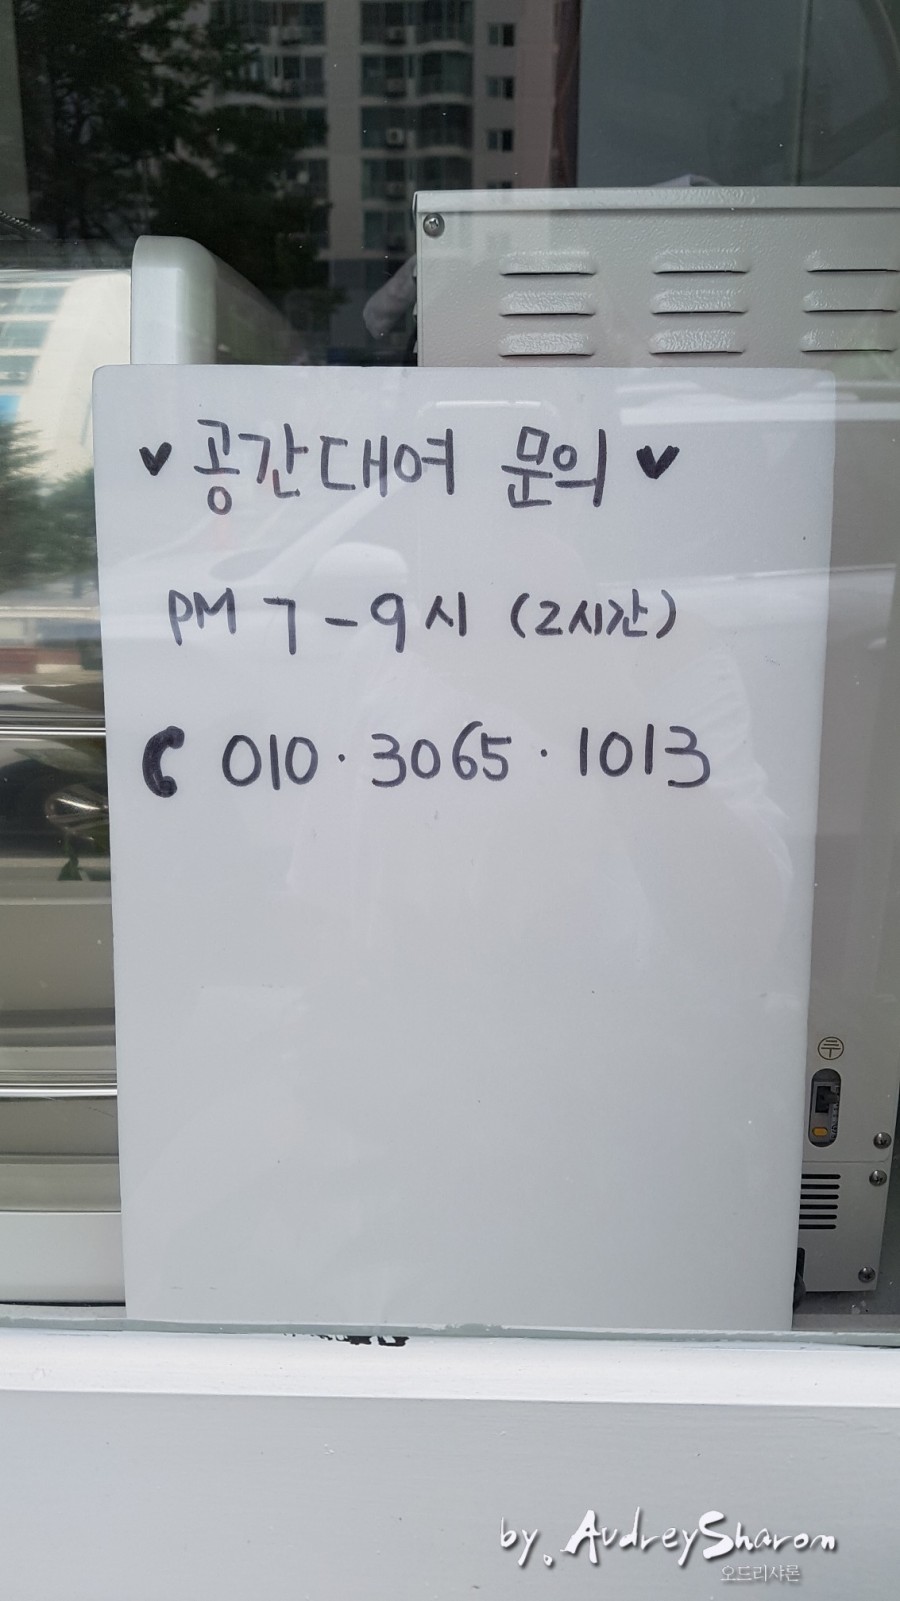 ♥ 공간대여 문의 ♥
PM 7-9시 (2시간)
010·3065·1013
by. AudreySharon
오드리샤론